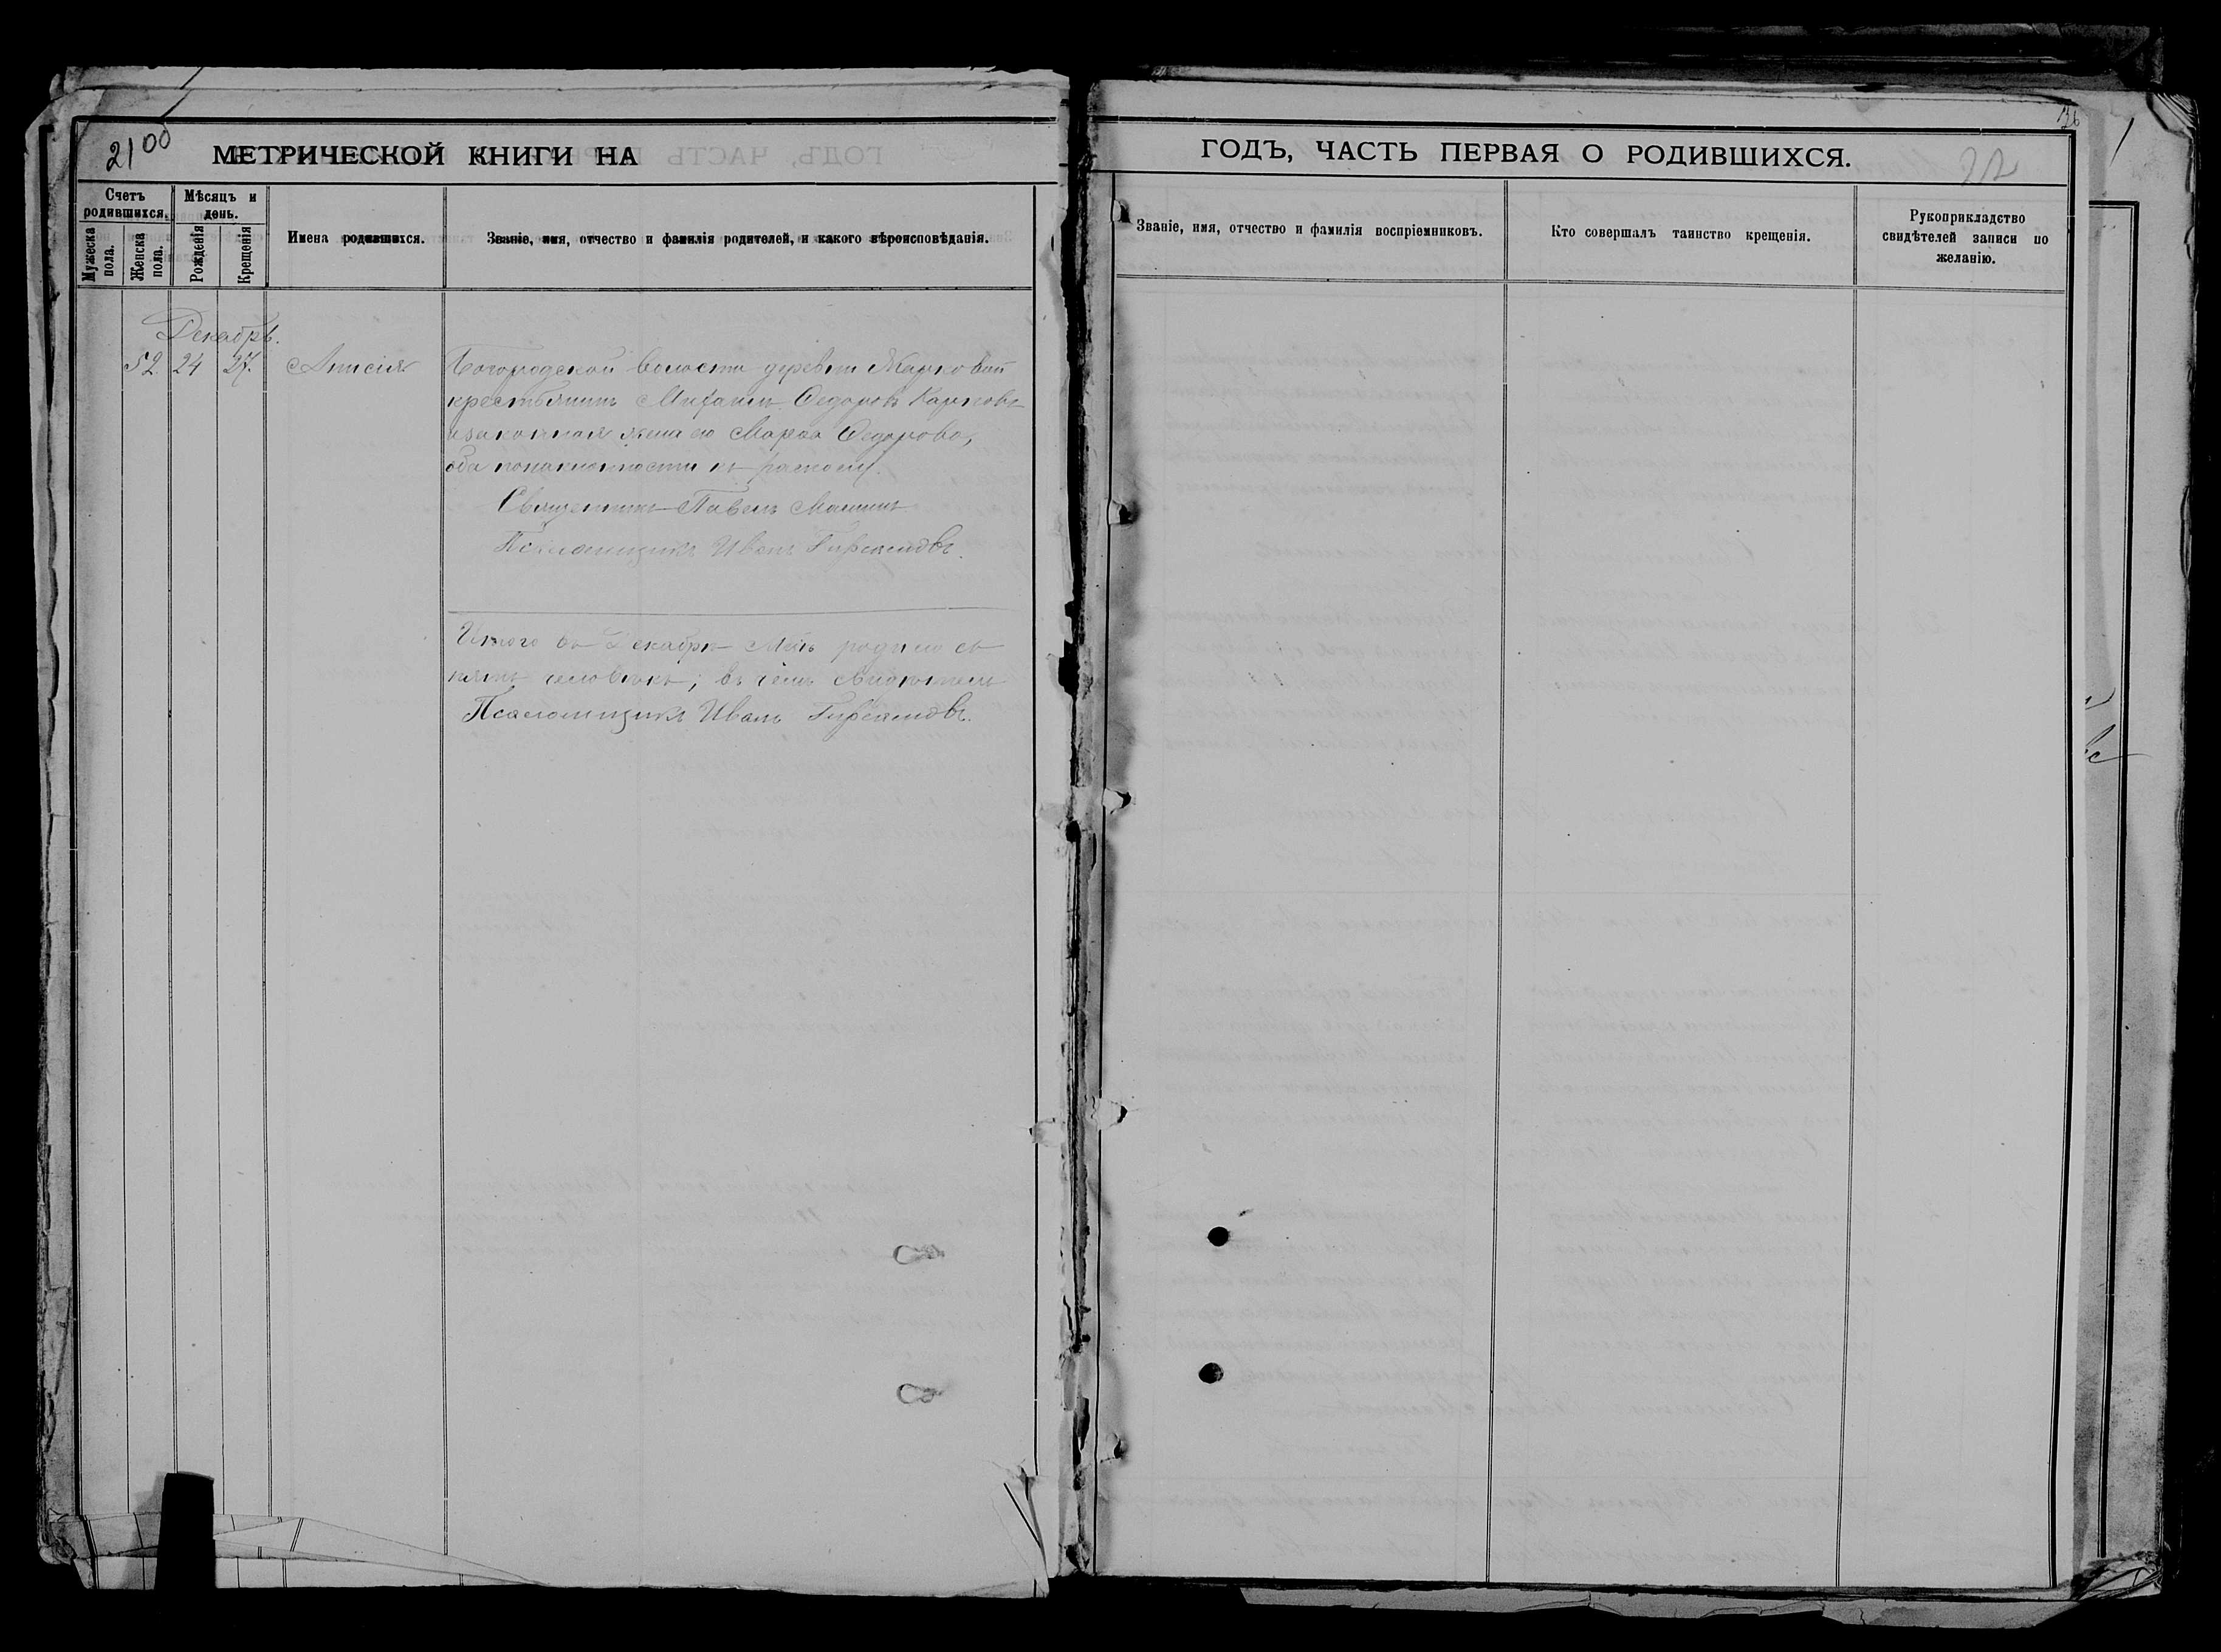 2100
МЕТРИЧЕСКОЙ КНИГИ НА
Счетъ родившихся.
Мѣсяцъ и день.
Мужеска пола.
Женска пола.
Рожденія
Крещенія
Имена родившихся.
Званіе, имя, отчество и фамилія родителей, и какого вѣроисповѣданія.
Декабрь.
52. 24 27. Анисія
Богородской волости деревни Марковой
крестьянинъ Михаилъ Ѳедоровъ Карповъ
и законная жена его Марѳа Ѳедорова,
оба по наклонности къ расколу.
Священникъ Павелъ Маминъ
Псаломщикъ Иванъ
Итого въ Декабрѣ Мцѣ родилось
пять человѣкъ; въ чемъ свидѣтель
Псаломщикъ Иванъ
ГОДЪ, ЧАСТЬ ПЕРВАЯ О РОДИВШИХСЯ.
Званіе, имя, отчество и фамилія воспріемниковъ.
Кто совершалъ таинство крещенія.
Рукоприкладство свидѣтелей записи по желанію.